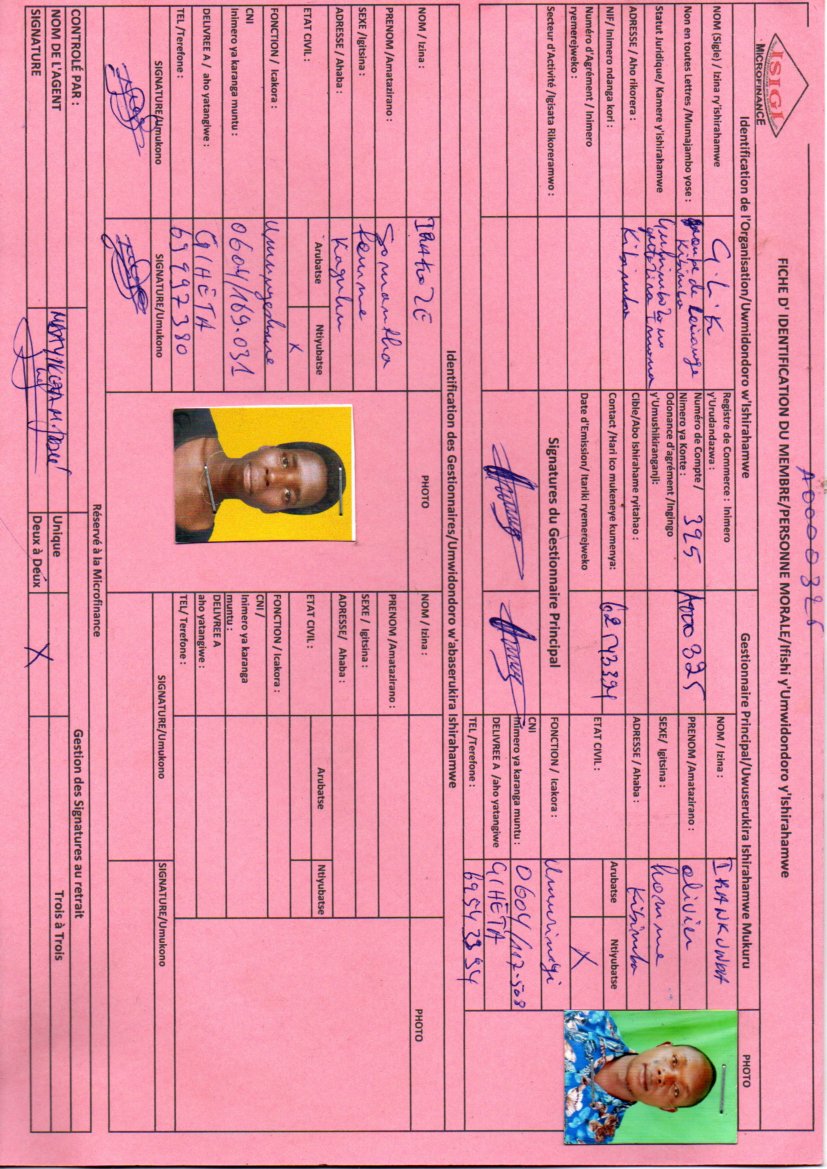 A0000325
ISIGI
MICROFINANCE
FICHE D' IDENTIFICATION DU MEMBRE/PERSONNE MORALE/Ifishi y'Umwidondoro y'Ishirahamwe
Identification de l'Organisation/Uwmidondoro w'Ishirahamwe
Gestionnaire Principal/Uwuserukira Ishirahamwe Mukuru
PHOTO
NOM (Sigle) / Izina ry'ishirahamwe
G.L.K
Non en toutes Lettres /Mumajambo yose :
Groupe de Louange Kibimba
Statut Juridique/ Kamere y'ishirahamwe
ADRESSE / Aho rikorera :
Kibimba
NIF/ Inimero ndanga kori :
Numéro d'Agrément / Inimero
ryemerejweko :
Secteur d'Activité /Igisata Rikoreramwo :
Registre de Commerce : Inimero
y'Urudandazwa :
Numéro de Compte /
Nimero ya Konte :
325
A000325
Odonance d'agrément /Ingingo
y'Umushikiranganji:
Cible/Abo Ishirahame ryitaho :
Contact /Hari ico mukeneye kumenya:
62173394
Date d'Emission/ Itariki ryemerejweko
Signatures du Gestionnaire Principal
NOM / Izina :
IRANKUNDA
PRENOM /Amatazirano :
olivier
SEXE/ Igitsina :
homme
ADRESSE / Ahaba :
Kibimba
ETAT CIVIL :
Arubatse
Ntiyubatse
X
FONCTION / Icakora :
Umurindyi
CNI
Inimero ya karanga muntu :
0604/117.508
DELIVREE A /aho yatangiwe
GIHETA
TEL /Terefone :
69543394
Identification des Gestionnaires/Umwidondoro w'abaserukira Ishirahamwe
NOM / Izina :
IRAKOZE
PHOTO
PRENOM /Amatazirano :
Samantha
SEXE /Igitsina :
femme
ADRESSE / Ahaba :
Kaguhu
ETAT CIVIL :
Arubatse
Ntiyubatse
X
FONCTION / Icakora :
Umunyeshure
CNI
Inimero ya karanga muntu :
0604/169.031
DELIVREE A / aho yatangiwe :
GIHETA
TEL /Terefone :
69997380
SIGNATURE/Umukono
SIGNATURE/Umukono
NOM / Izina :
PHOTO
PRENOM /Amatazirano :
SEXE / Igitsina :
ADRESSE/ Ahaba :
ETAT CIVIL :
Arubatse
Ntiyubatse
FONCTION / Icakora :
CNI /
Inimero ya karanga
muntu :
DELIVREE A
aho yatangiwe :
TEL/ Terefone :
SIGNATURE/Umukono
SIGNATURE/Umukono
Réservé à la Microfinance
CONTROLÉ PAR :
Gestion des Signatures au retrait
NOM DE L'AGENT
Unique
Trois à Trois
SIGNATURE
Deux à Deux
X